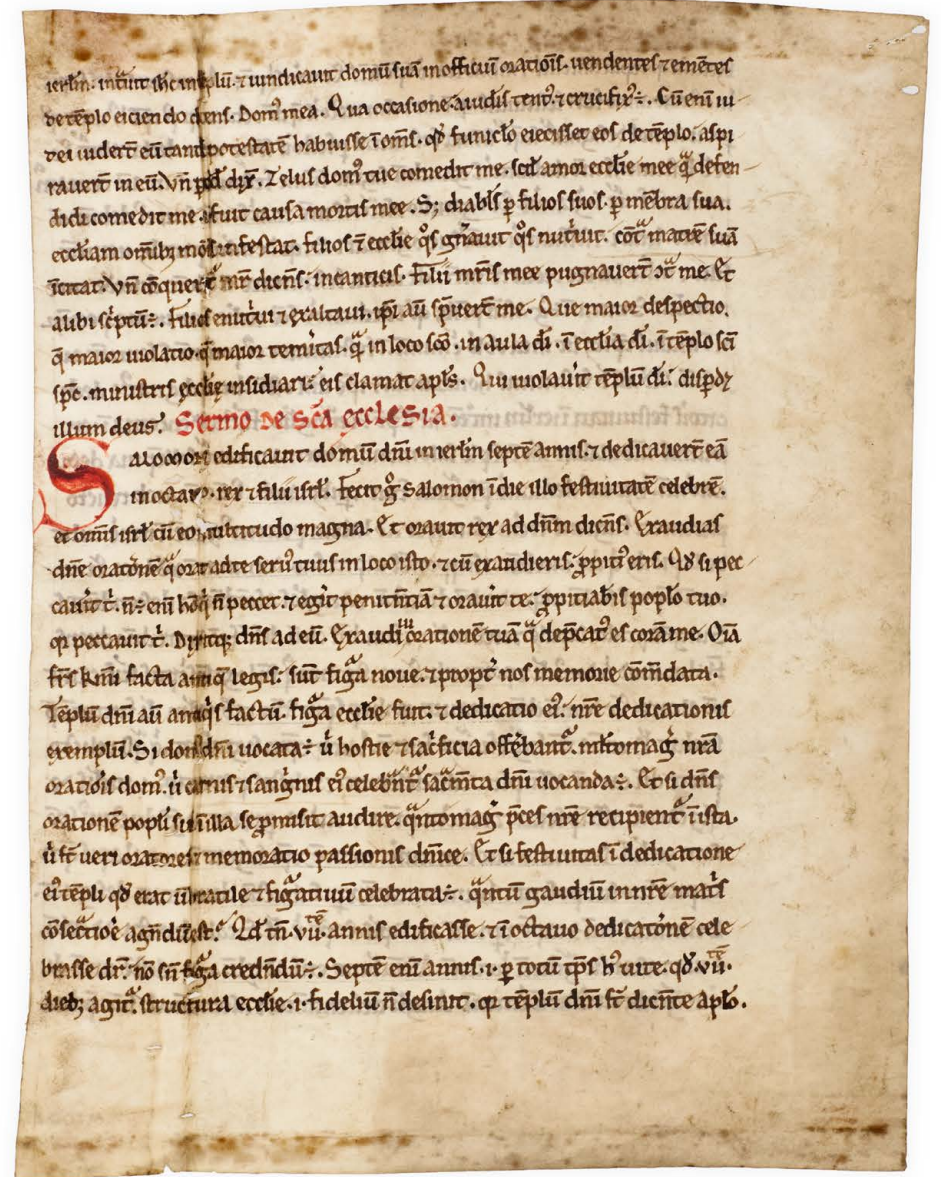 ierl̄m. intᷓuit ihc̄ in teplū. ⁊ uindicauit domū suā in officiū orationis. uendentes ⁊ em̄tes
de tēplo eiciendo dicens. Domꝰ mea. Qua occasione. auidis tentꝰ ⁊ crucifixꝰ ÷. Cū eni iu
dei uidert̄ eū tantā potestatē habuisse ī oms̄. qd̄ funiclo eiecisset eos de tēplo. aspi
rauert̄ in eū. Vn̄ dix̄. Zelus domꝰ tue comedit me. scil̄ amor ecclie mee qᷓ defen
didi comedit me. ⁊ fuit causa mortis mee. S; diabl̄s ꝑ filios suos. ꝑ mēbra sua.
eccliam omībꝫ mōis infestat. filios ⁊ ecclie qͦs gn̄auit qͦs nut͛uit. cotᷓ matrē suā
īcitat. Vn̄ cōquerit͛ mr̄ dicen̄s. in canticis. Filii mr̄is mee pugnauert̄ ɔtᷓ me. Et
alibi sc͛ptū ÷. Filios enut͛ui ⁊ exaltaui. ip̄i aū sp̄uert̄ me. Que maior despectio.
q̄ maior uiolatio. q̄ maior tem͛itas. qᷓ in loco sc̄o. in aula dī. ī ecclia dī. ī tēplo sc̄i
sp̄c. ministris ęcclię insidiari. eis clamat apl̄s. Qui uiolau͛it tēplū dī. disp̄dꝫ
illum deus. Sermo de sc̄a ęcclesia.
Salomon edificauit domū dn̄i in ierl̄m septē annis. ⁊ dedicauert̄ eā
in octauo. rex ⁊ filii isrl̄. Fecit gͦ salomon ī die illo festiuitatē celebrē.
et omīs isrl̄ cū eo multitudo magna. Et orauit rex ad dn̄m dicn̄s. Exaudias
dn̄e oratōnē qᷓ orat ad te seruꝰ tuus in loco isto. ⁊ cū exaudieris. ꝓpitiꝰ eris. Qd̄ si pec
cau͛it t͛. n̄ ÷ enī hō q͛ n̄ peccet. ⁊ egit penitn̄tiā ⁊ orau͛it te. ꝓpitiabis poplo tuo.
qi peccauit t͛. Dixitqꝫ dn̄s ad eū. Exaudiui orationē tuā qᷓ dep̄catꝰ es corā me. Oīa
fr̄s kmī facta antiq̄ legis. sūt figᷓa noue. ⁊ propt͛ nos memorie cōmdata.
Tēplū dn̄i aū antiq͛s factū. figᷓa ecclie fuit. ⁊ dedicatio eiꝰ. nr̄e dedicationis
exemplū. Si domꝰ dn̄i uocata ÷ u͛ hostie ⁊ sac͛ficia offēbantᷣ. ml̄tomagͥ nr̄a
orationis domꝰ. u͛ carnis ⁊ sanguinis eiꝰ celebn̄tᷣ sacm̄ta dn̄i uocanda ÷. Et si dn̄s
orationē popli sui ī illa se ꝓmisit audire. qᷓntomagͥ p̄ces nr̄e recipientᷣ ī ista.
u͛ sūt ueri oratores ⁊ memoratio passionis dn̄ice. Et si festiuitas ī dedicatione
eiꝰ tēpli qd̄ erat ūbratile ⁊ figᷓatiuū celebrata ÷. qᷓntū gaudiū in nr̄e matis
cōsecᷓtiōe agendū est. Qd̄ tn̄ .vii. annis edificasse. ⁊ ī octauo dedicatōnē cele
brasse dr̄. nō sn̄ figᷓa credn̄dū ÷. Septē enī annis .i. ꝑ totū tp̄s hꝰ uite. qd̄ .vii.
diebꝫ agitᷣ. structura ecclie .i. fideliū n̄ desinit. qi tēplū dn̄i sūt dicn̄te aplo.